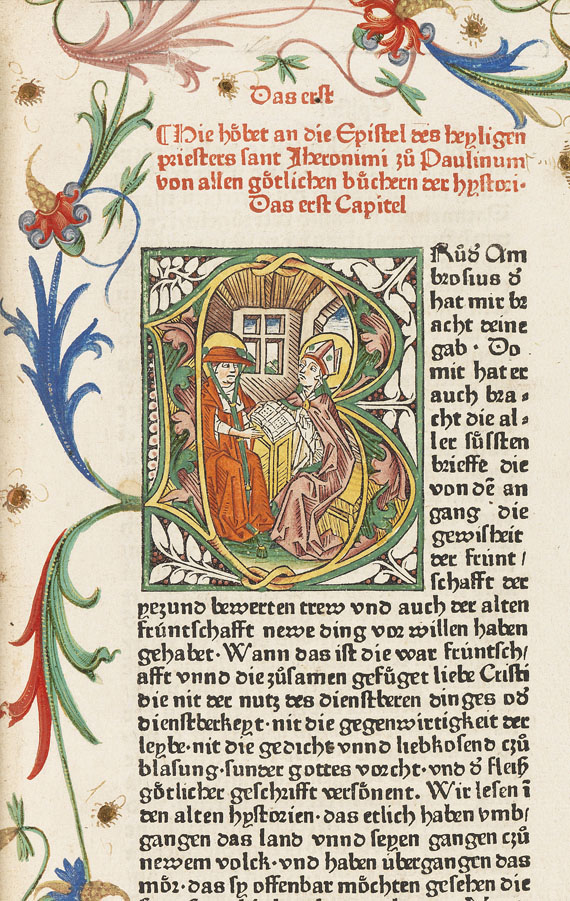 Das erst
Hie hȯbet an die Epistel des heyligen
priesters sant Jheronimi zů Paulinum
von allen gȯtlichen bůchern der hystori·
Das erst Capitel
Růď Am
brosius ď
hat mir br
acht deine
gab · Do
mit hat er
auch bra⸗
cht die al⸗
ler sůssten
brieffe die
von dē an
gang die
gewisheit
der frúnt /
schafft der
yezund bewerten trew vnd auch der alten
frúntschafft newe ding vor willen haben
gehabet· Wann das ist die war frúntsch/
afft vnnd die zůsamen gefůget liebe Cristi
die nit der nutz des dienstberen dinges oď
dienstberkeyt·nit die gegenwirtigkeit der
leybe·nit die gedicht vnnd liebkosend czů
blasung·sunder gottes vorcht·vnd ď fleiß
gȯtlicher geschrifft versȯnent. Wir lesen ī
den alten hystorien·das etlich haben vmb/
gangen das land vnnd seyen gangen czů
newem volck·vnd haben úbergangen das
mȯr·das sy offenbar mȯchten gesehen die